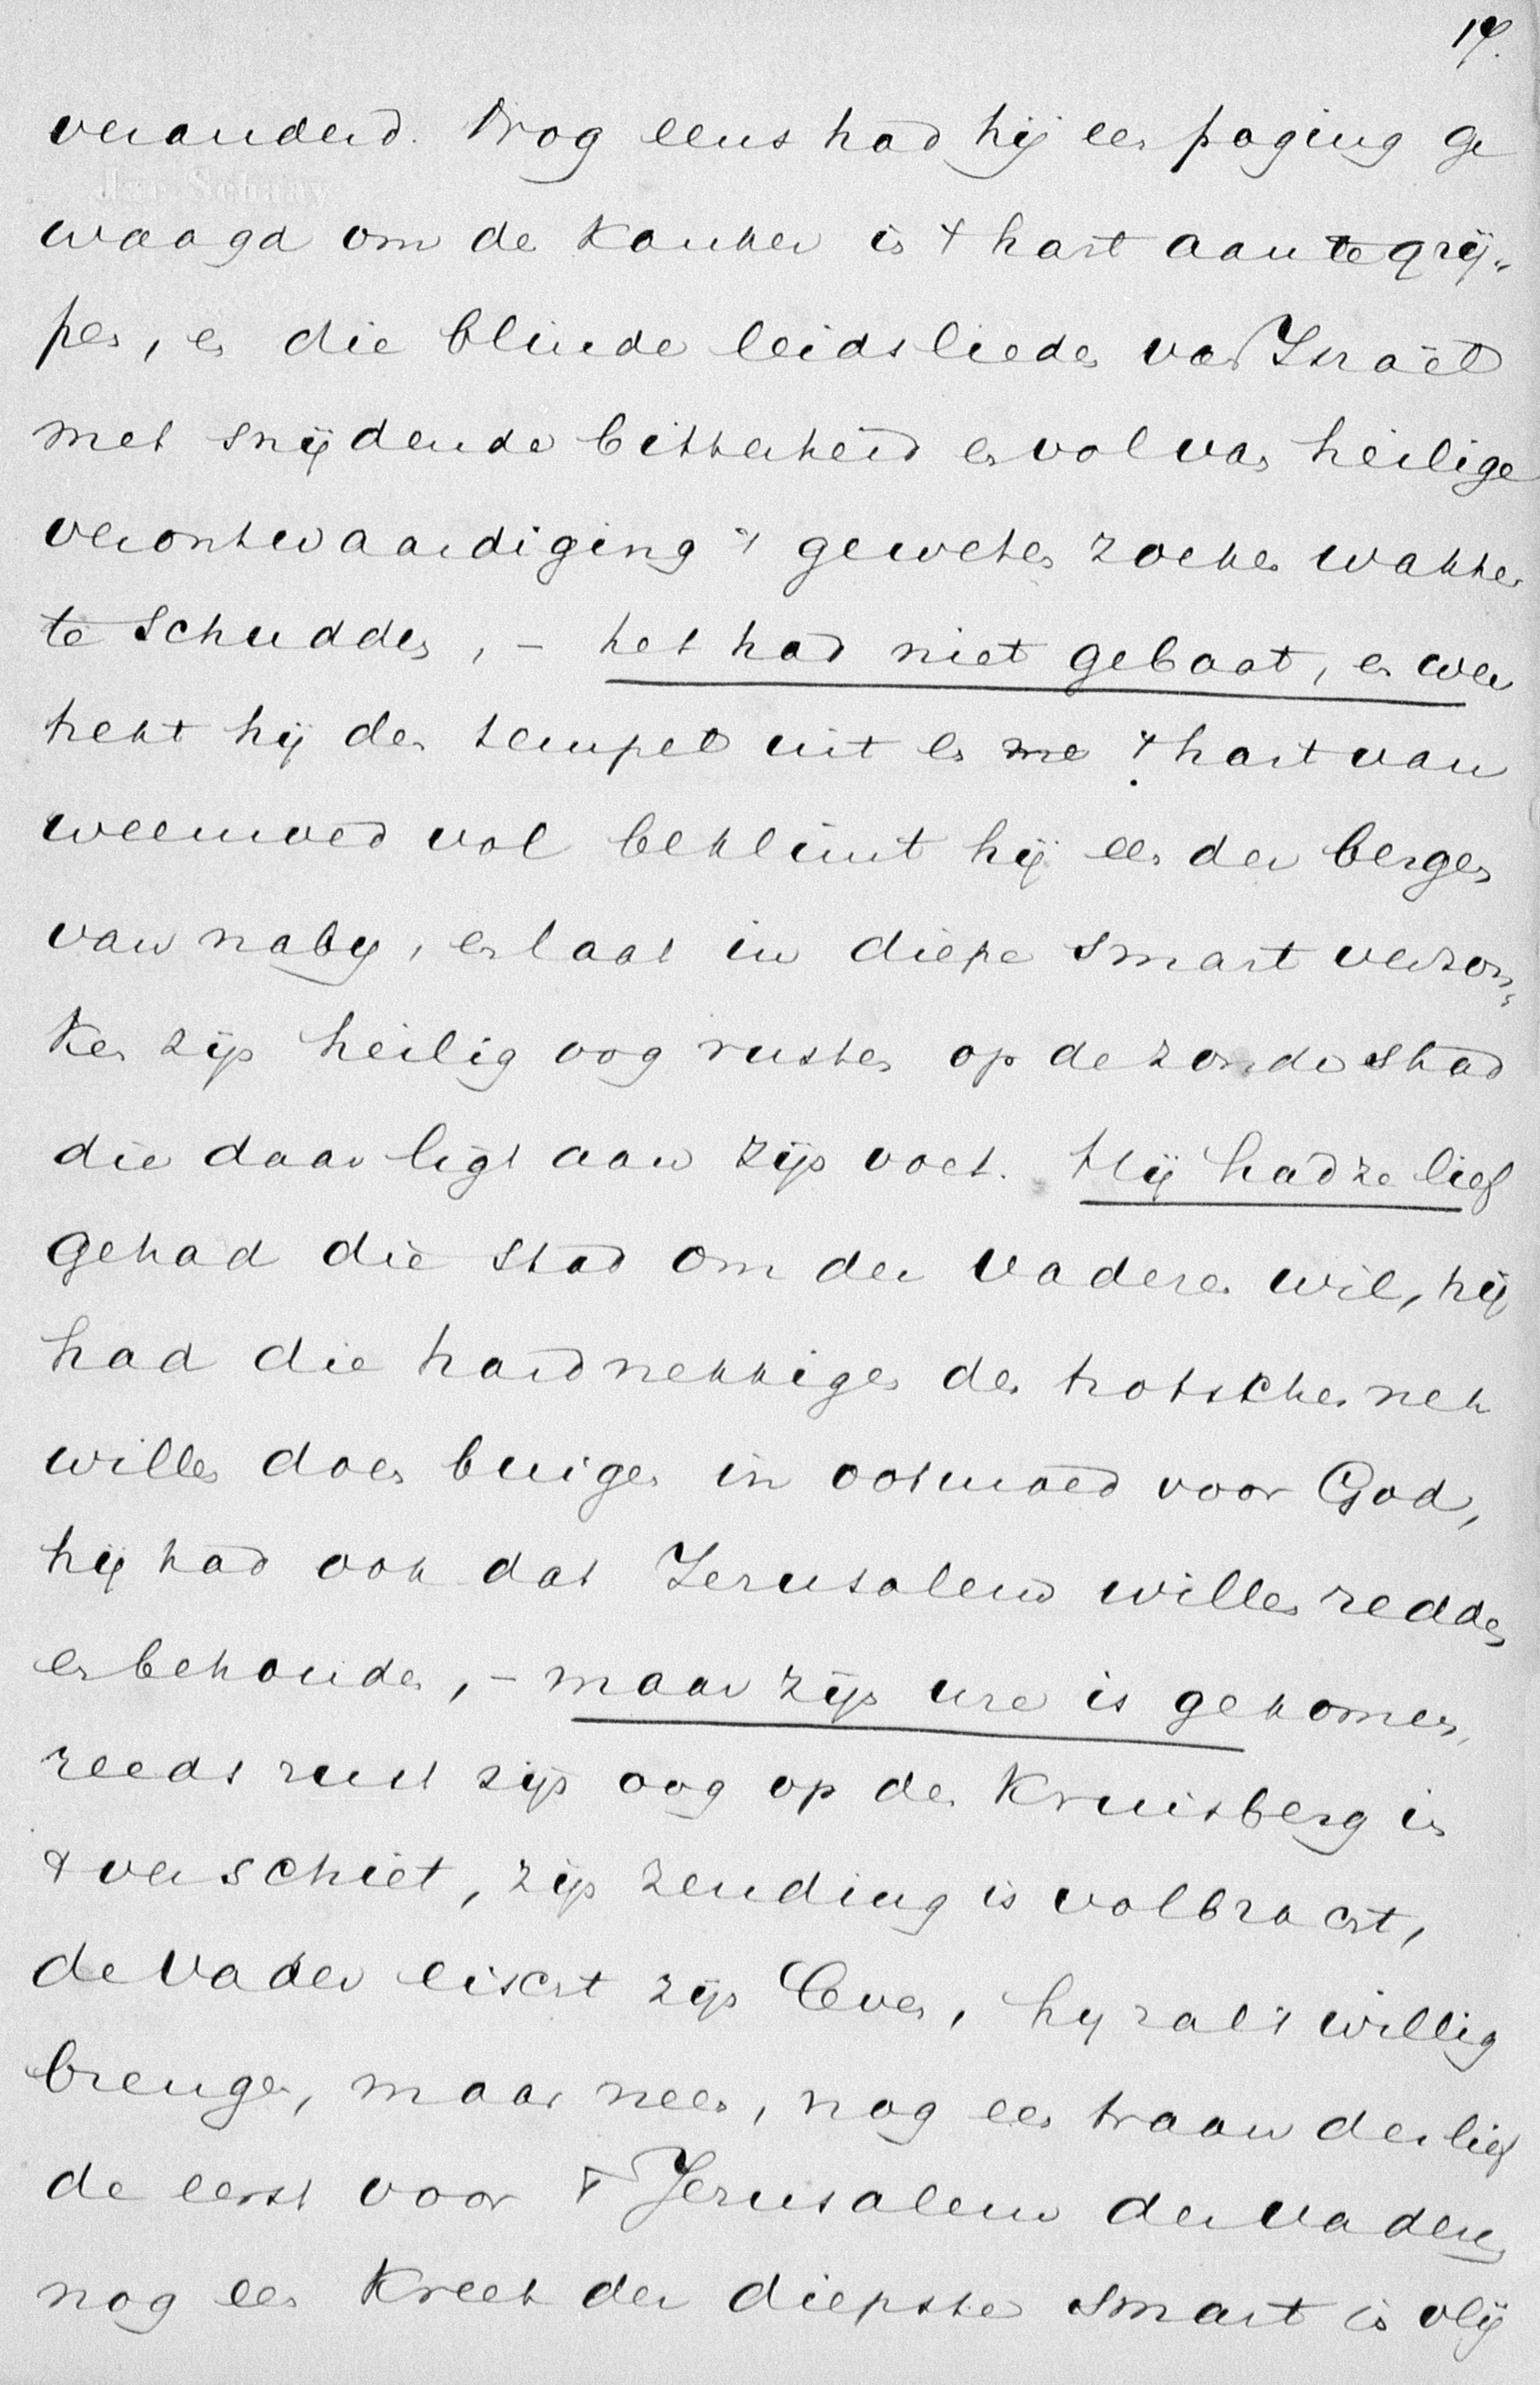 14.
veranderd. Nog eens had hij een poging ge
waagd om de kanker in 't hart aan te grij-
pen, en die blinde leidslieden van Israël
met snijdende bitterheid en vol van heilige
verontwaardiging 't geweten zoeken wakker
te schudden, - het had niet gebaat, en wer
trekt hij den tempel uit en me 't hart van
weemoed vol beklimt hij een der bergen
van naby, en laat in diepe smart verzon-
ken zijn heilig oog rusten op de zondestad
die daar ligt aan zijn voet. Hij had ze lief
gehad die stad om der vaderen wil, hij
had die hardnekkigen den trotschen nek
willen doen buigen in ootmoed voor God,
hij had ook dat Jerusalem willen redden
en behouden, - maar zijn ure is gekomen,
reeds rust zijn oog op den kruisberg in
't verschiet, zijn zending is volbracht,
de Vader eischt zijn leven, hy zal 't willig
brengen, maar neen, nog een traan der lief
de eerst voor 't Jerusalem der vaderen
nog een kreet der diepste smart is vlij